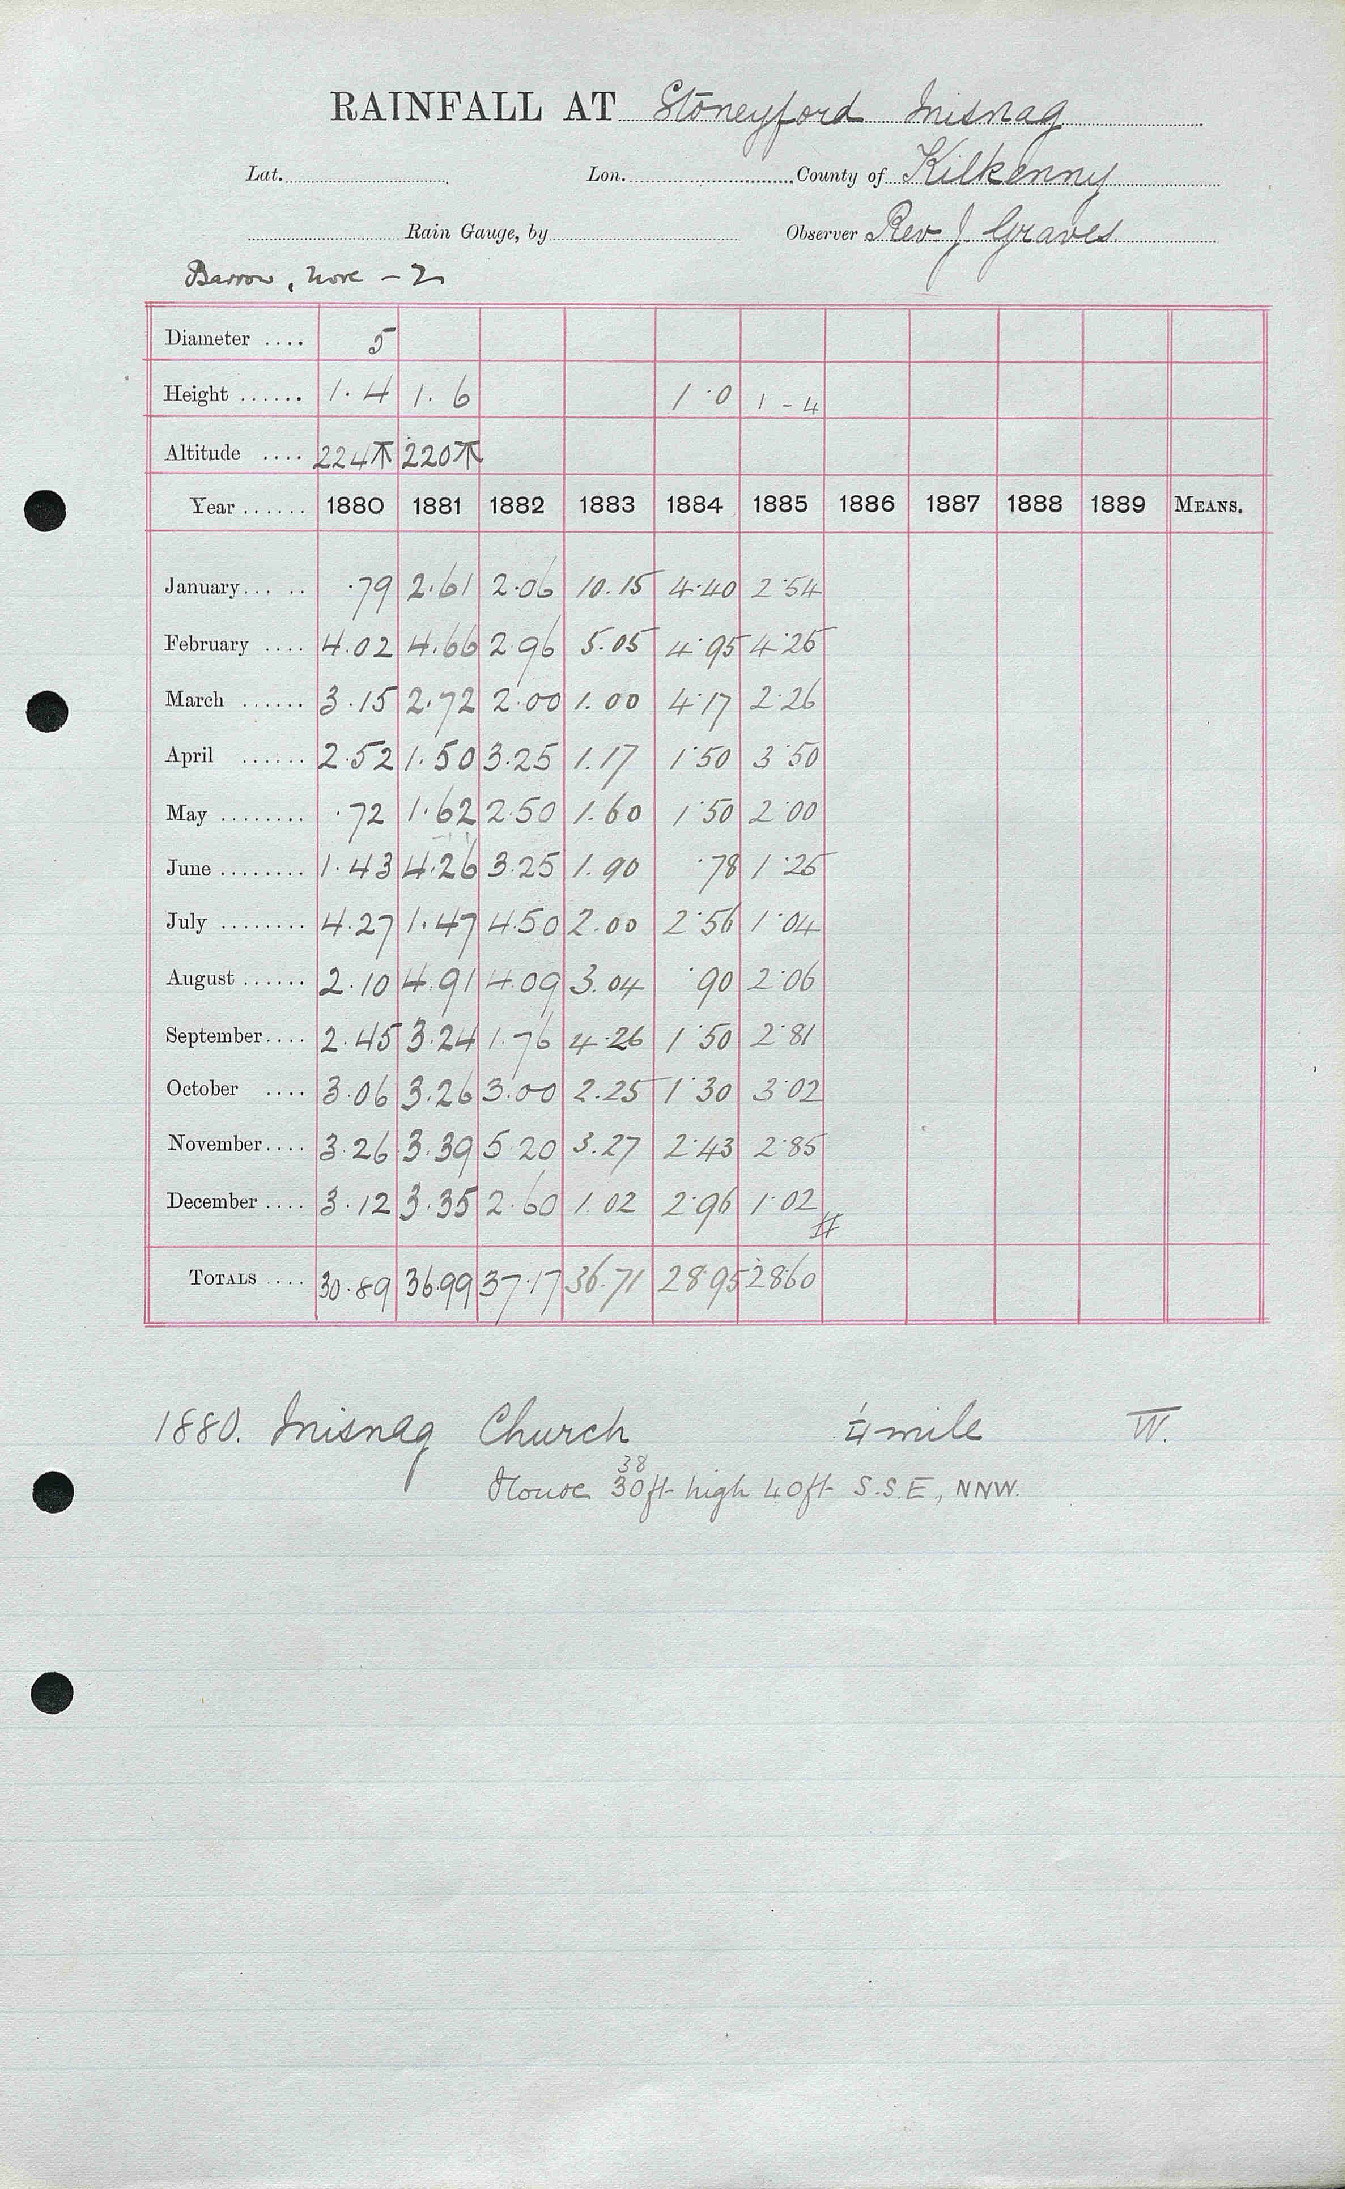 RAINFALL AT Stoneyford Inisnag
Lat. Lon. County of Kilkenny
Rain Gauge, by Observer Rev J Graves
Barrow, Nore - 2
Diameter .... 5
Height ...... 1.4 1.6 1.0 1-4
Altitude .... 224 220
Year ...... 1880 1881 1882 1883 1884 1885 1886 1887 1888 1889 MEANS.
January... .. .79 2.61 2.06 10.15 4.40 2.54
February .... 4.02 4.66 2.96 5.05 4.95 4.25
March ...... 3.15 2.72 2.00 1.00 4.17 2.26
April ...... 2.52 1.50 3.25 1.17 1.50 3.50
May ........ .72 1.62 2.50 1.60 1.50 2.00
June ........ 1.43 4.26 3.25 1.90 .78 1.25
July ........ 4.27 1.47 4.50 2.00 2.56 1.04
August ...... 2.10 4.91 4.09 3.04 .90 2.06
September.... 2.45 3.24 1.76 4.26 1.50 2.81
October .... 3.06 3.26 3.00 2.25 1.30 3.02
November.... 3.26 3.39 5.20 3.27 2.43 2.85
December .... 3.12 3.35 2.60 1.02 2.96 1.02
TOTALS .... 30.89 36.99 37.17 36.71 28.95 28.60
1880. Inisnag Church ¼ mile W.
38
House 30ft high 40ft S.S.E, NNW.